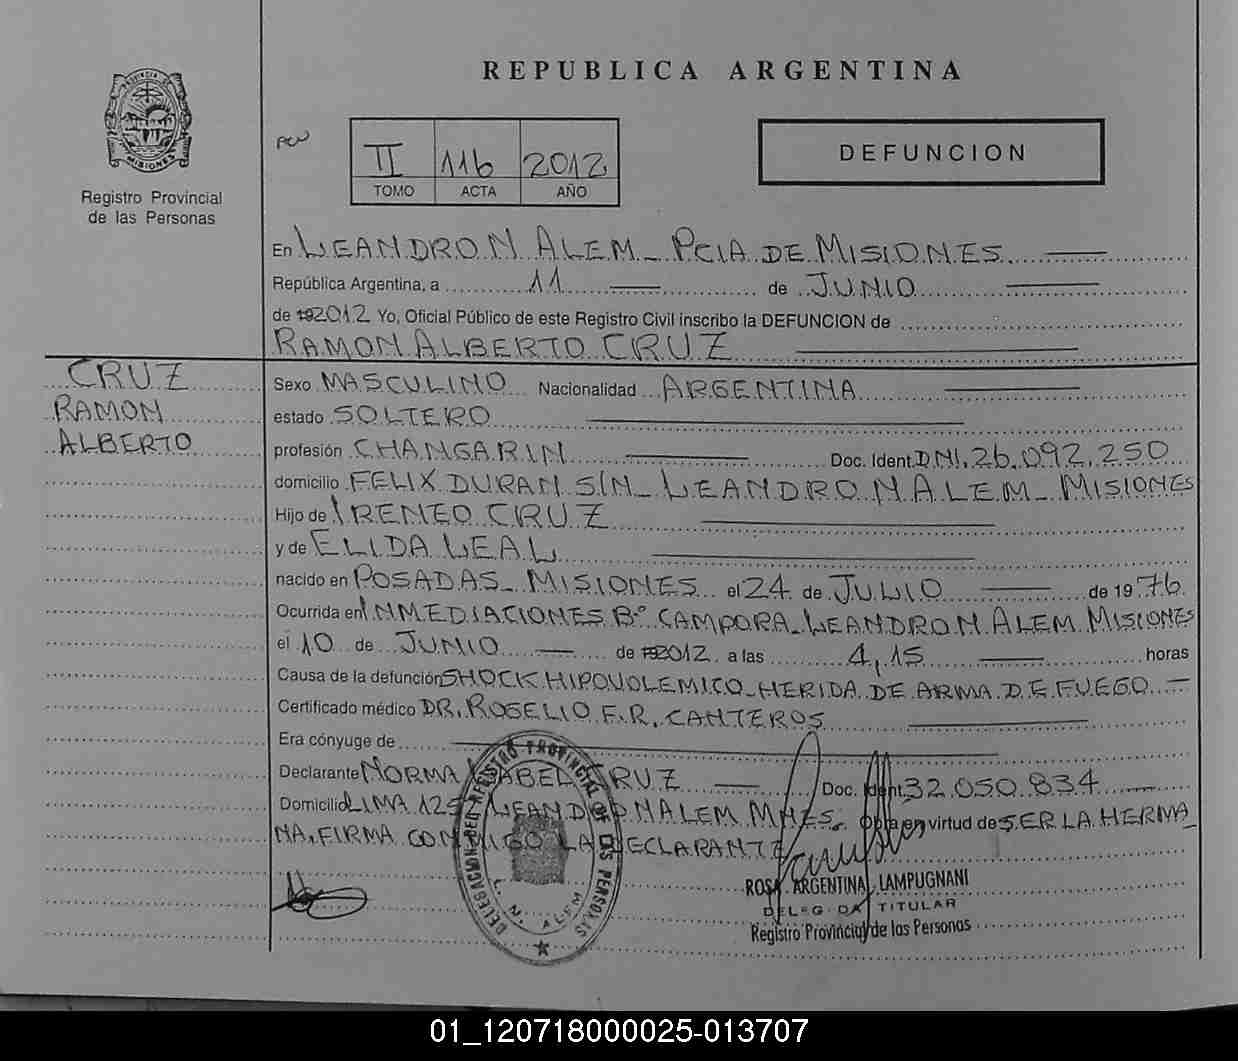 REPUBLICA ARGENTINA
PROVINCIA DE MISIONES
Registro Provincial
de las Personas
II 116 2012
TOMO ACTA AÑO
DEFUNCION
En LEANDRO N. ALEM - PCIA DE MISIONES
República Argentina, a 11 de JUNIO
de 192012 Yo, Oficial Público de este Registro Civil inscribo la DEFUNCION de
RAMON ALBERTO CRUZ
CRUZ
RAMON
ALBERTO
Sexo MASCULINO Nacionalidad ARGENTINA
estado SOLTERO
profesión CHANGARIN Doc. Ident. DNI. 26.092.250
domicilio FELIX DURAN S/N - LEANDRO N. ALEM - MISIONES
Hijo de IRENEO CRUZ
y de ELIDA LEAL
nacido en POSADAS - MISIONES el 24 de JULIO de 1976
Ocurrida en INMEDIACIONES Bº CAMPORA - LEANDRO N. ALEM MISIONES
el 10 de JUNIO de 192012 a las 4,15 horas
Causa de la defunción SHOCK HIPOVOLEMICO - HERIDA DE ARMA DE FUEGO
Certificado médico DR. ROGELIO F. R. CANTEROS
Era cónyuge de
Declarante NORMA ISABEL CRUZ Doc. Ident. 32.050.834
Domicilio LIMA 125 LEANDRO N ALEM MNES. Obra en virtud de SER LA HERMA-
NA, FIRMA CONMIGO LA DECLARANTE
DELEGACION DEL REGISTRO PROVINCIAL DE LAS PERSONAS
L. N. ALEM
ROSA ARGENTINA LAMPUGNANI
DELEGADA TITULAR
Registro Provincial de las Personas
01_120718000025-013707